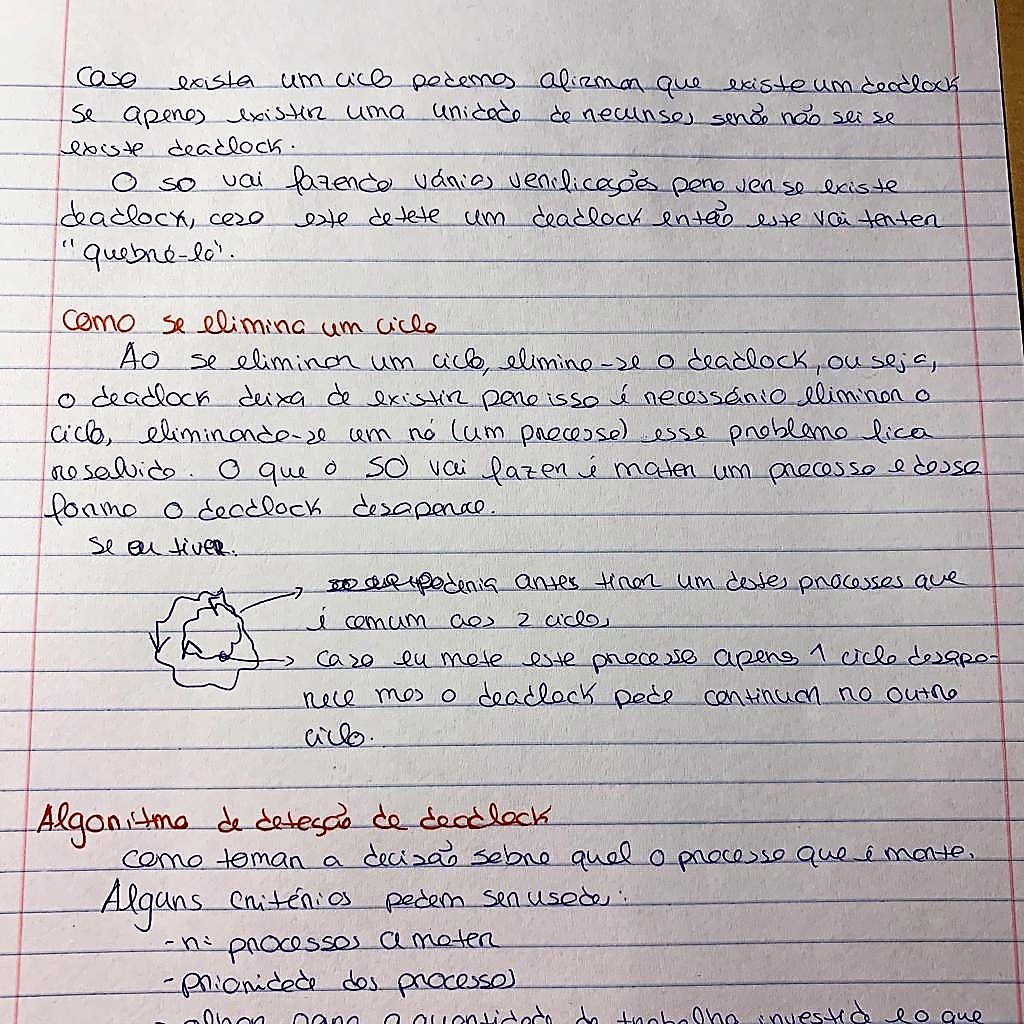 Caso exista um ciclo podemos afirmar que existe um deadlock
se apenas existir uma unidade de recursos, senão não sei se
existe deadlock.
O SO vai fazendo várias verificações para ver se existe
deadlock, caso este detete um deadlock então este vai tentar
"quebrá-lo".
Como se elimina um ciclo
Ao se eliminar um ciclo, elimina-se o deadlock, ou seja,
o deadlock deixa de existir para isso é necessário eliminar o
ciclo, eliminando-se um nó (um processo) esse problema fica
resolvido. O que o SO vai fazer é matar um processo e dessa
forma o deadlock desaparece.
Se eu tiver.
poderia antes tirar um destes processos que
é comum aos 2 ciclos
caso eu mate este processo apenas 1 ciclo desapa-
rece mas o deadlock pode continuar no outro
ciclo.
Algoritmo de deteção de deadlock
Como tomar a decisão sobre qual o processo que é morto.
Alguns critérios podem ser usados:
- nº processos a matar
- prioridade dos processos
- olhar para a quantidade de trabalho investida e o que